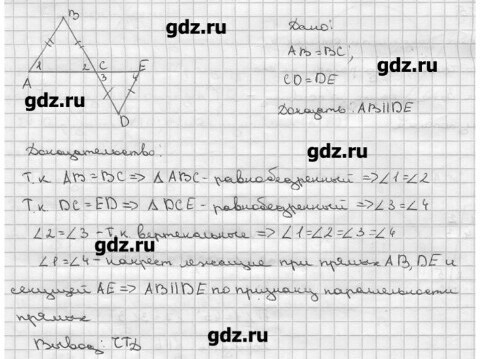 gdz.ru
B
Дано:
AB=BC;
1 2 C E
A 3 4
CD=DE
gdz.ru
gdz.ru
Доказать: AB||DE
D
Доказательство:
gdz.ru
Т.к AB=BC => Δ ABC - равнобедренный => ∠1=∠2
Т.к DC=ED => Δ DCE - равнобедренный => ∠3=∠4
∠2=∠3 - т.к вертекальные => ∠1=∠2=∠3=∠4
∠1=∠4 - накрест лежащие при прямых AB, DE и
секущей AE => AB||DE по признаку паралельности
прямых
gdz.ru
Вывод: ЧТД